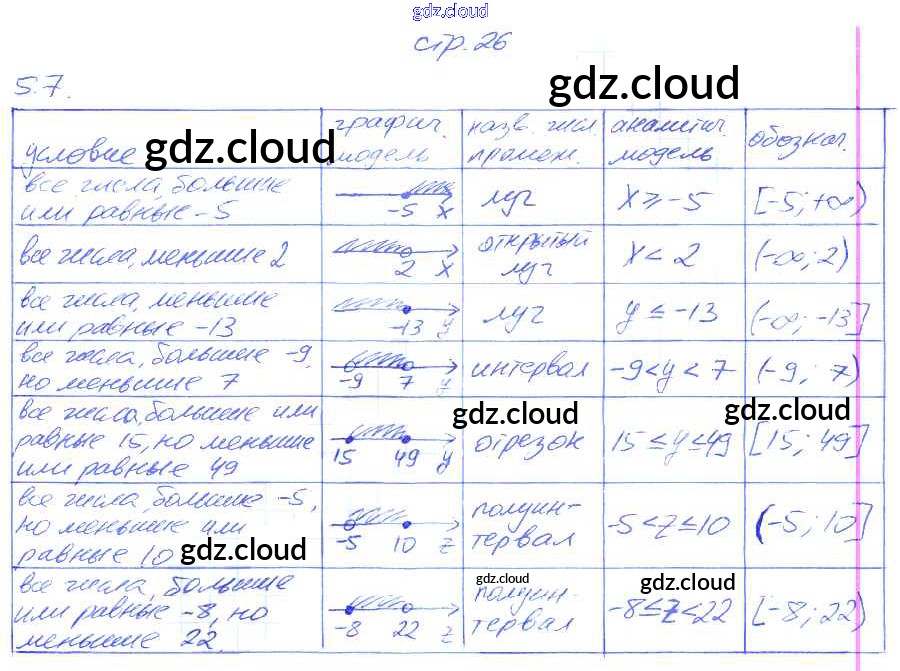 gdz.cloud
стр. 26
gdz.cloud
5.7.
условие
gdz.cloud
графич. модель
назв. числ. промеж.
аналитич. модель
обознач.
все числа, большие
или равные -5
-5 x
луч
x ≥ -5
[-5; +∞)
все числа, меньшие 2
2 x
открытый
луч
x < 2
(-∞; 2)
все числа, меньшие
или равные -13
-13 y
луч
y ≤ -13
(-∞; -13]
все числа, большие -9,
но меньшие 7
-9 7 y
интервал
-9 < y < 7
(-9; 7)
все числа, большие или
равные 15, но меньшие
или равные 49
15 49 y
gdz.cloud
отрезок
15 ≤ y ≤ 49
gdz.cloud
[15; 49]
все числа, большие -5,
но меньшие или
равные 10
gdz.cloud
-5 10 z
полуин-
тервал
-5 < z ≤ 10
(-5; 10]
все числа, большие
или равные -8, но
меньшие 22.
-8 22 z
gdz.cloud
полуин-
тервал
gdz.cloud
-8 ≤ z < 22
[-8; 22)